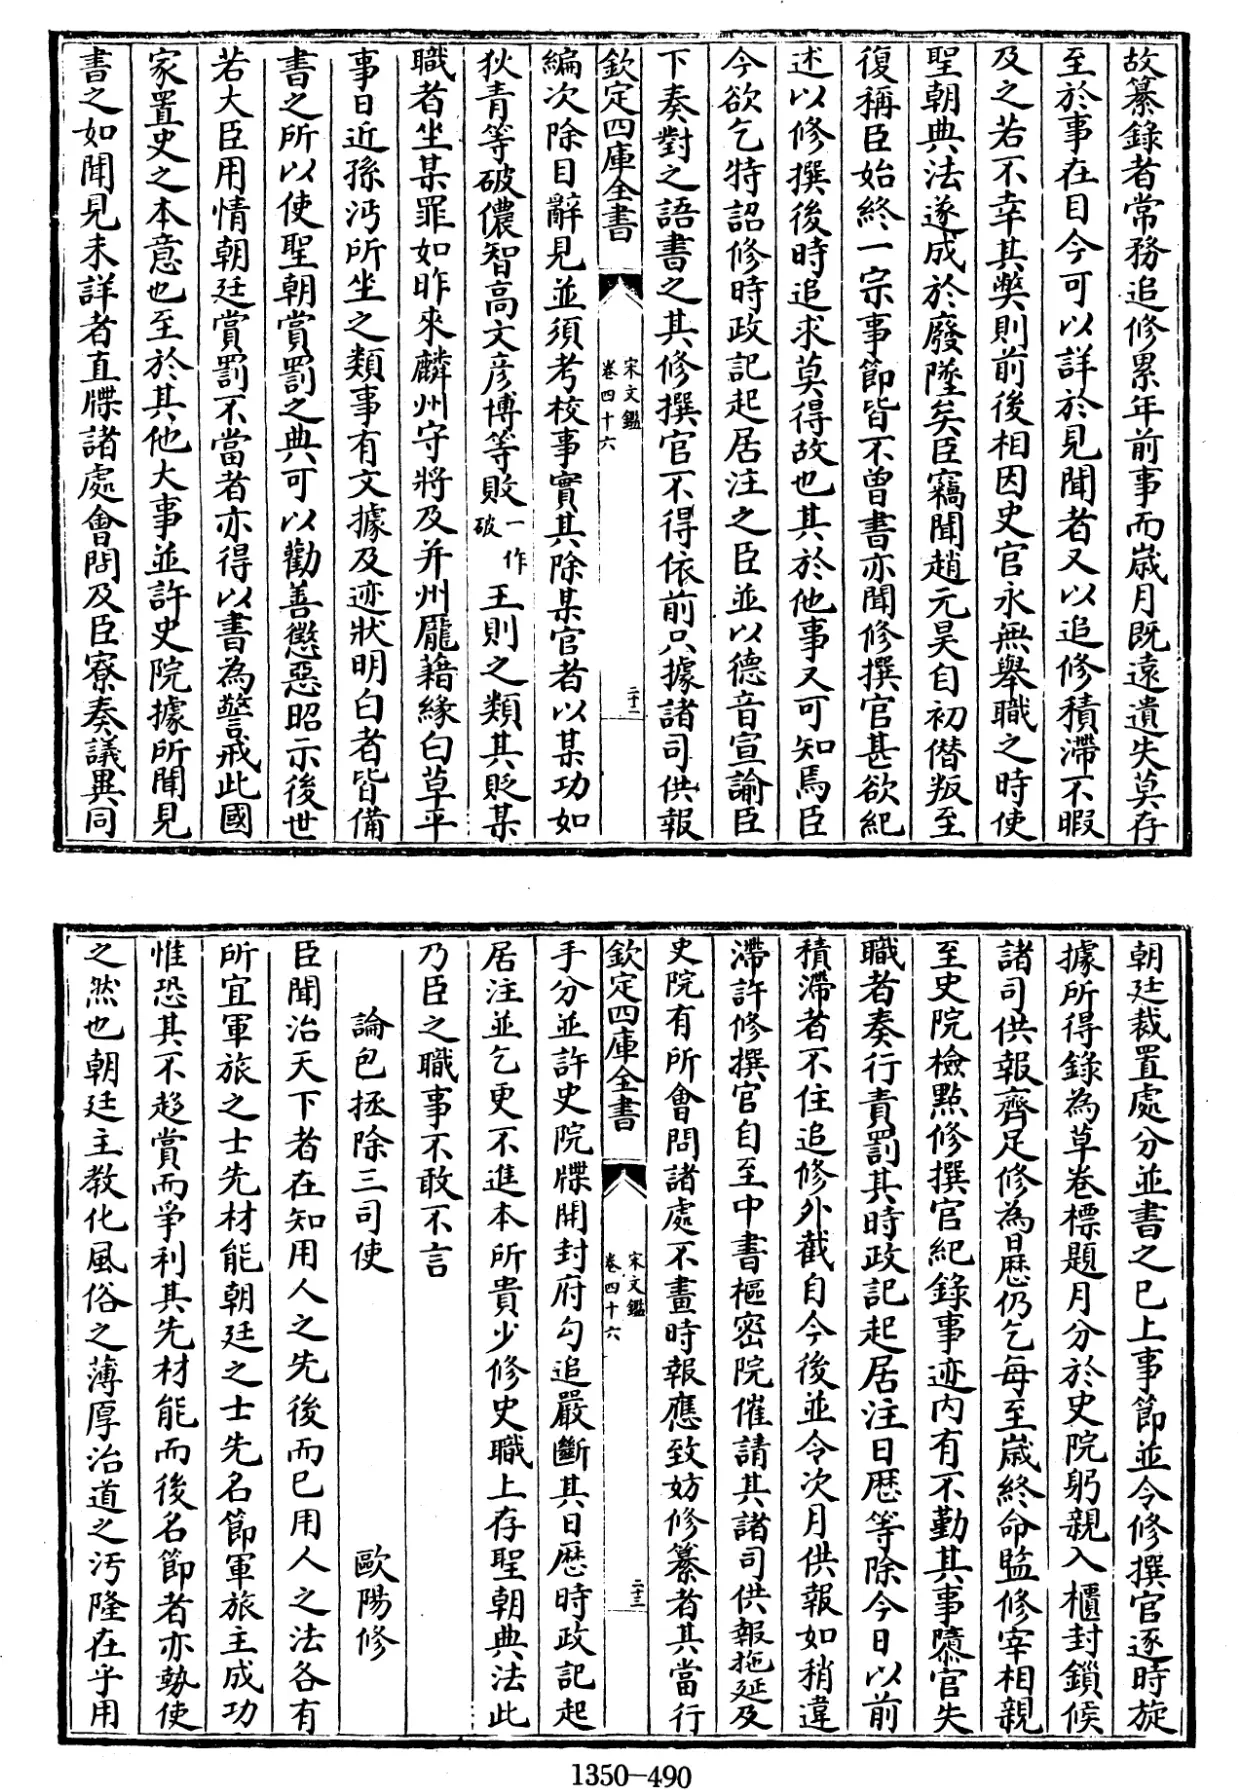 故纂錄者常務追修累年前事而嵗月既逺遺失莫存
至於事在目今可以詳於見聞者又以追修積滯不暇
及之若不幸其弊則前後相因史官永無舉職之時使
聖朝典法遂成於廢墜矣臣竊聞趙元昊自初僭叛至
復稱臣始終一宗事節皆不曽書亦聞修撰官甚欲紀
述以修撰後時追求莫得故也其於他事又可知焉臣
今欲乞特詔修時政記起居注之臣並以徳音宣諭臣
下奏對之語書之其修撰官不得依前只據諸司供報
欽定四庫全書
宋文鑑
卷四十六
二十二
編次除目辭見並須考校事實其除某官者以某功如
狄青等破儂智高文彦博等敗一作破王則之類其貶某
職者坐某罪如昨來麟州守將及并州龐籍緣白草平
事日近孫沔所坐之類事有文據及迹狀明白者皆備
書之所以使聖朝賞罰之典可以勸善懲惡昭示後世
若大臣用情朝廷賞罰不當者亦得以書為警戒此國
家置史之本意也至於其他大事並許史院據所聞見
書之如聞見未詳者直牒諸處㑹問及臣寮奏議異同
朝廷裁置處分並書之已上事節並令修撰官逐時旋
據所得錄為草卷標題月分於史院躬親入櫃封鎖候
諸司供報齊足修為日厯仍乞每至嵗終命監修宰相親
至史院檢㸃修撰官紀錄事迹内有不勤其事隳官失
職者奏行責罰其時政記起居注日厯等除今日以前
積滯者不住追修外截自今後並令次月供報如稍違
滯許修撰官自至中書樞密院催請其諸司供報拖延及
史院有所㑹問諸處不畫時報應致妨修纂者其當行
欽定四庫全書
宋文鑑
卷四十六
二十三
手分並許史院牒開封府勾追嚴斷其日厯時政記起
居注並乞更不進本所貴少修史職上存聖朝典法此
乃臣之職事不敢不言
論包拯除三司使 歐陽修
臣聞治天下者在知用人之先後而已用人之法各有
所宜軍旅之士先材能朝廷之士先名節軍旅主成功
惟恐其不趍賞而爭利其先材能而後名節者亦勢使
之然也朝廷主敎化風俗之薄厚治道之汚隆在乎用
1350—490